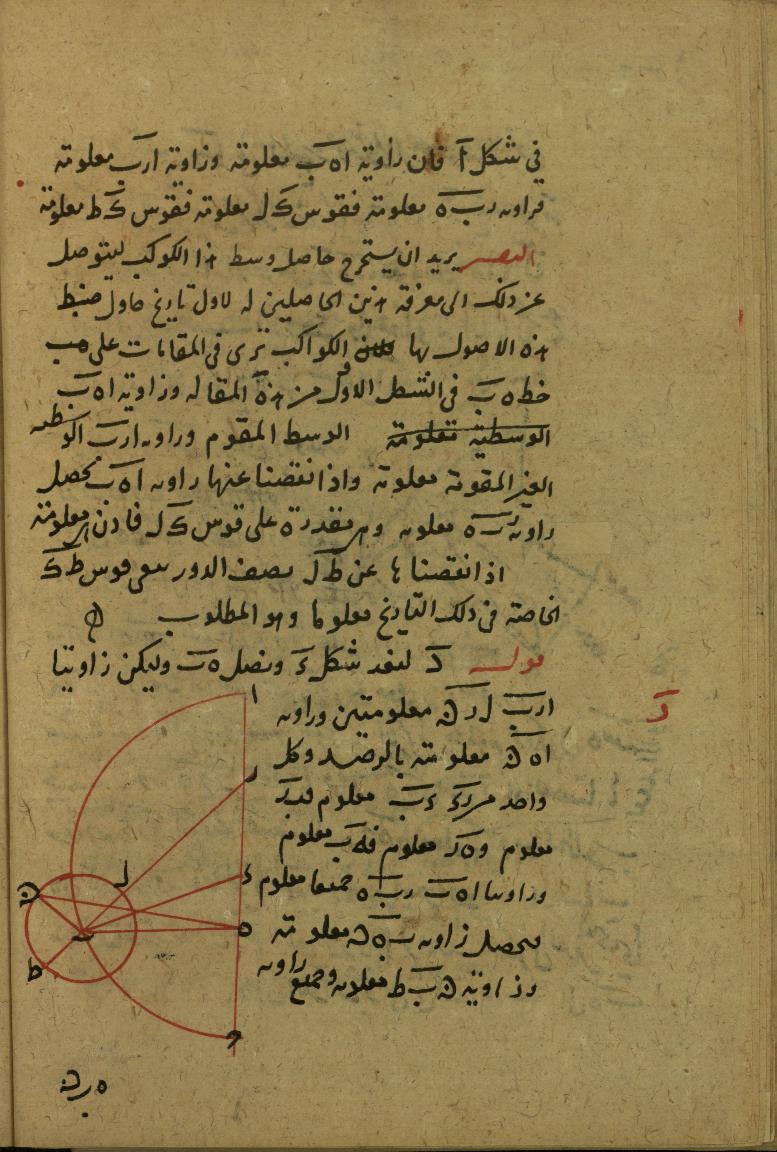 في شكل آ فان زاوية اه ب معلومة وزاوية ارب معلومة
فزاوية رب ه معلومة فقوس ك ل معلومة فقوس ك ط معلومة
يريد ان يستخرج حاصل وسط هذا الكوكب ليتوصل
عن ذلك الى معرفة هذين الحاصلين له لاول تاريخ حاول ضبط
هذه الاصول بها الكواكب ترى في المقامات على
خط ه ب في الشكل الاول من هذه المقالة وزاوية اه ب
الوسطية معلومة الوسط المقوم وزاوية ارب الوسطية
الغير المقومة معلومة واذا نقصنا عنها زاوية اه ب تحصل
زاوية رب ه معلومة وهي مقدرة على قوس ك ل فاذن هي معلومة
اذا نقصناها عن ط ل نصف الدور بقي قوس ط ك
الخاصة في ذلك التاريخ معلوما وهو المطلوب
د لنعد شكل ونصل ه ب وليكن زاويتا
ارب ل ر معلومتين وزاوية
اه ن معلومة بالرصد وكل
واحد من معلوم
معلوم و ه ر معلوم فه ب معلوم
وزاويتا اه ب رب ه جميعا معلوم
فتحصل زاوية ب ه ن معلومة
وزاوية ن ب ط معلومة وجميع زاوية
د
ا
ر
ل
ء
ن
ه
ب
ط
ح
ه ب ن